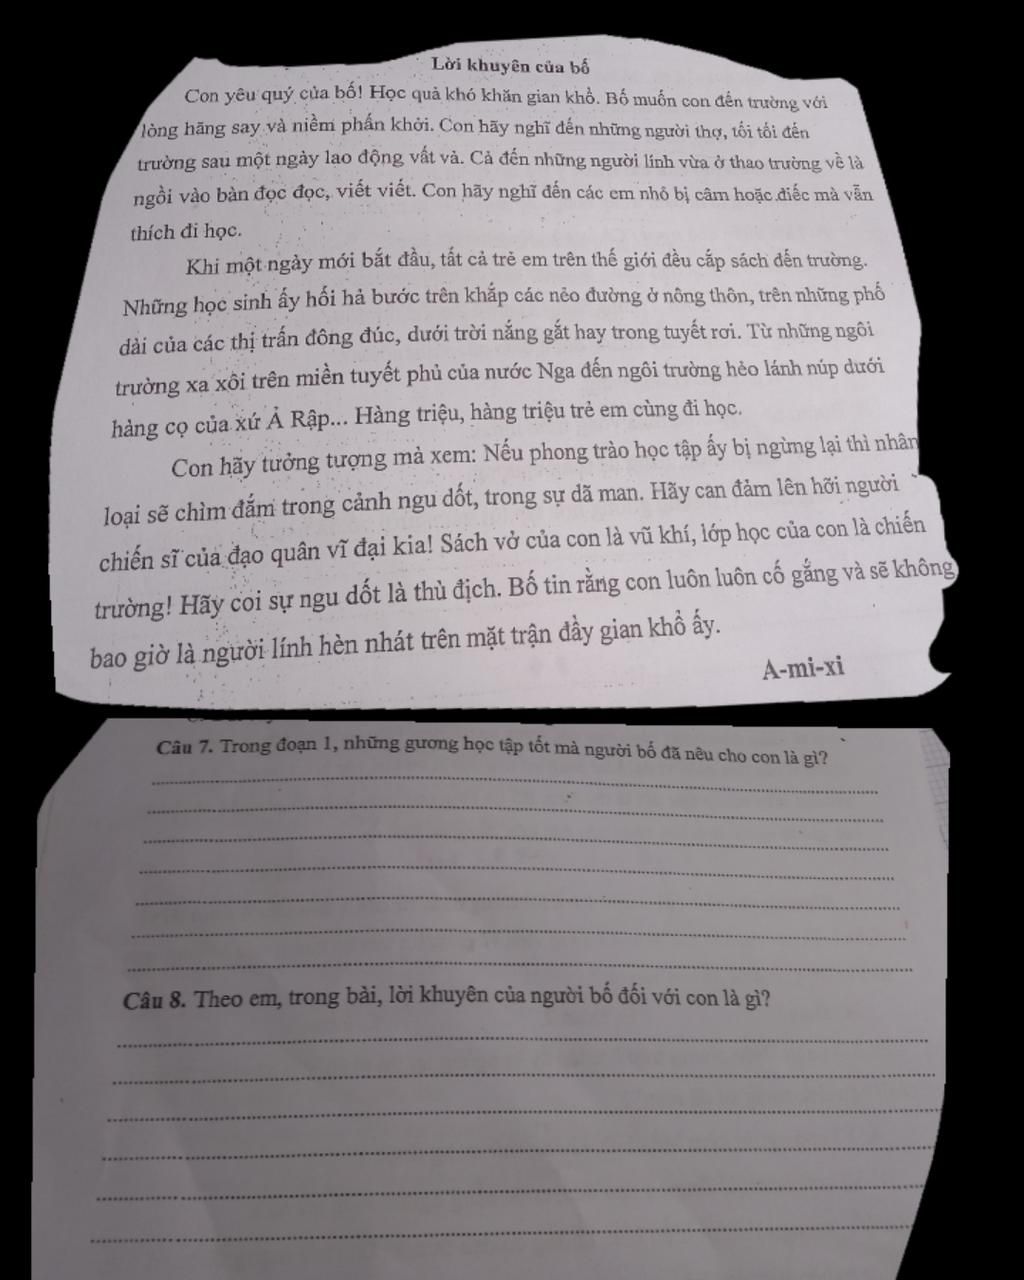 Lời khuyên của bố
Con yêu quý của bố! Học quả khó khăn gian khổ. Bố muốn con đến trường với
lòng hăng say và niềm phấn khởi. Con hãy nghĩ đến những người thợ, tối tối đến
trường sau một ngày lao động vất vả. Cả đến những người lính vừa ở thao trường về là
ngồi vào bàn đọc đọc, viết viết. Con hãy nghĩ đến các em nhỏ bị câm hoặc điếc mà vẫn
thích đi học.
Khi một ngày mới bắt đầu, tất cả trẻ em trên thế giới đều cắp sách đến trường.
Những học sinh ấy hối hả bước trên khắp các nẻo đường ở nông thôn, trên những phố
dài của các thị trấn đông đúc, dưới trời nắng gắt hay trong tuyết rơi. Từ những ngôi
trường xa xôi trên miền tuyết phủ của nước Nga đến ngôi trường hẻo lánh núp dưới
hàng cọ của xứ Ả Rập... Hàng triệu, hàng triệu trẻ em cùng đi học.
Con hãy tưởng tượng mà xem: Nếu phong trào học tập ấy bị ngừng lại thì nhân
loại sẽ chìm đắm trong cảnh ngu dốt, trong sự dã man. Hãy can đảm lên hỡi người
chiến sĩ của đạo quân vĩ đại kia! Sách vở của con là vũ khí, lớp học của con là chiến
trường! Hãy coi sự ngu dốt là thù địch. Bố tin rằng con luôn luôn cố gắng và sẽ không
bao giờ là người lính hèn nhát trên mặt trận đầy gian khổ ấy.
A-mi-xi
Câu 7. Trong đoạn 1, những gương học tập tốt mà người bố đã nêu cho con là gì?
Câu 8. Theo em, trong bài, lời khuyên của người bố đối với con là gì?